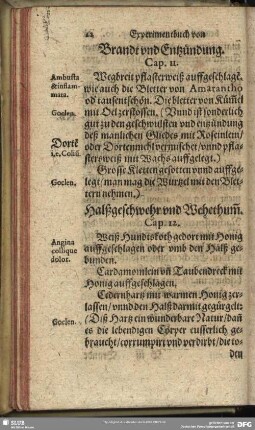 22 Experimentbuch von
Brandt vnd Entzündung.
Cap. 11.
Ambusta
& inflam-
mata.
Wegbreit pflasterweiß auffgeschlagē,
wie auch die Bletter von Amarantho
oð tausentschön. Die bletter von Kũmel
Goclen.
mit Oel zerstossen. (Vnnd ist sonderlich
gut zu den geschwulsten vnd entzündung
deß manlichen Gliedes mit Rosenmeln/
Dortē
i, e, Colisi.
oder Dortenmehl vermischet/vnnd pfla-
sterweiß mit Wachs auffgelegt.)
Grosse Kletten gesotten vnnd auffge-
Goclen.
legt/man mag die Wurtzel mit den Blet-
tern nehmen.)
Halßgeschwehr vnd Wehethum.
Cap. 12.
Angina
collique
dolor.
Weiß Hundtskoth gedört mit Honig
auffgeschlagen oder vmb den Halß ge-
bunden.
Cardamomlein vñ Taubendreck mit
Honig auffgeschlagen.
Cedernhartz mit warmen Honig zer-
lassen/vnnd den Halß darmit gegürgelt:
Goclen.
(Diß Hartz ein wunderbare Natur/dañ
es die lebendigen Cörper eusserlich ge-
braucht/corrumpirt vnd verdirbt/die to-
den
SLUB